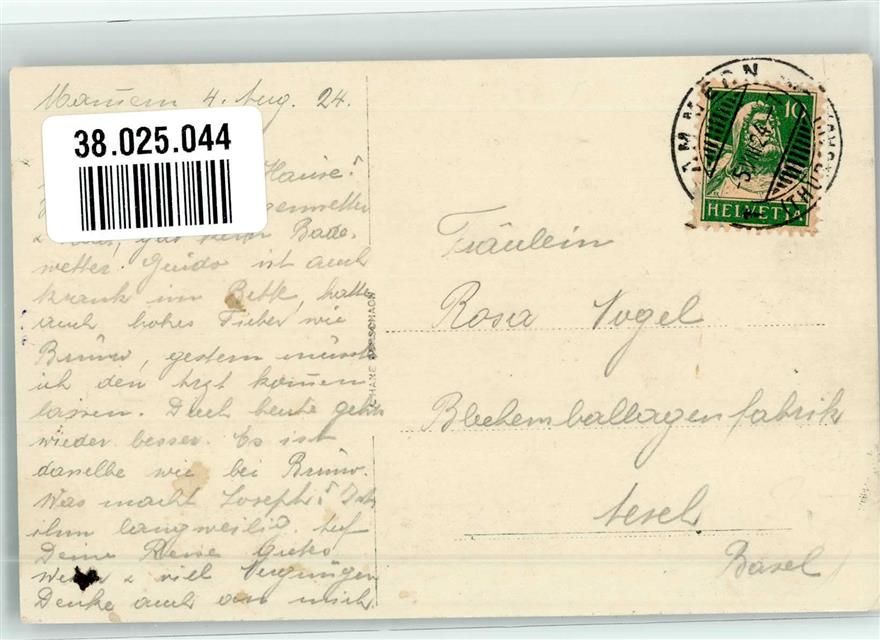 Mamern 4. Aug. 24.
38.025.044
Hause!
wetter. Guido ist auch
krank im Bett, hatte
auch hohes Fieber wie
Bruno, gestern musste
ich den Arzt kommen
lassen. Doch heute geht's
wieder besser. Es ist
dasselbe wie bei Bruno.
Was macht Joseph? Ist
ihm langweilig. Auf
Deine Reise gutes
Wetter & viel Vergnügen
Denke auch an mich.
AMMERN
10
HELVETIA
Fräulein
Rosa Vogel
Blechemballagenfabrik
Aesch
Basel